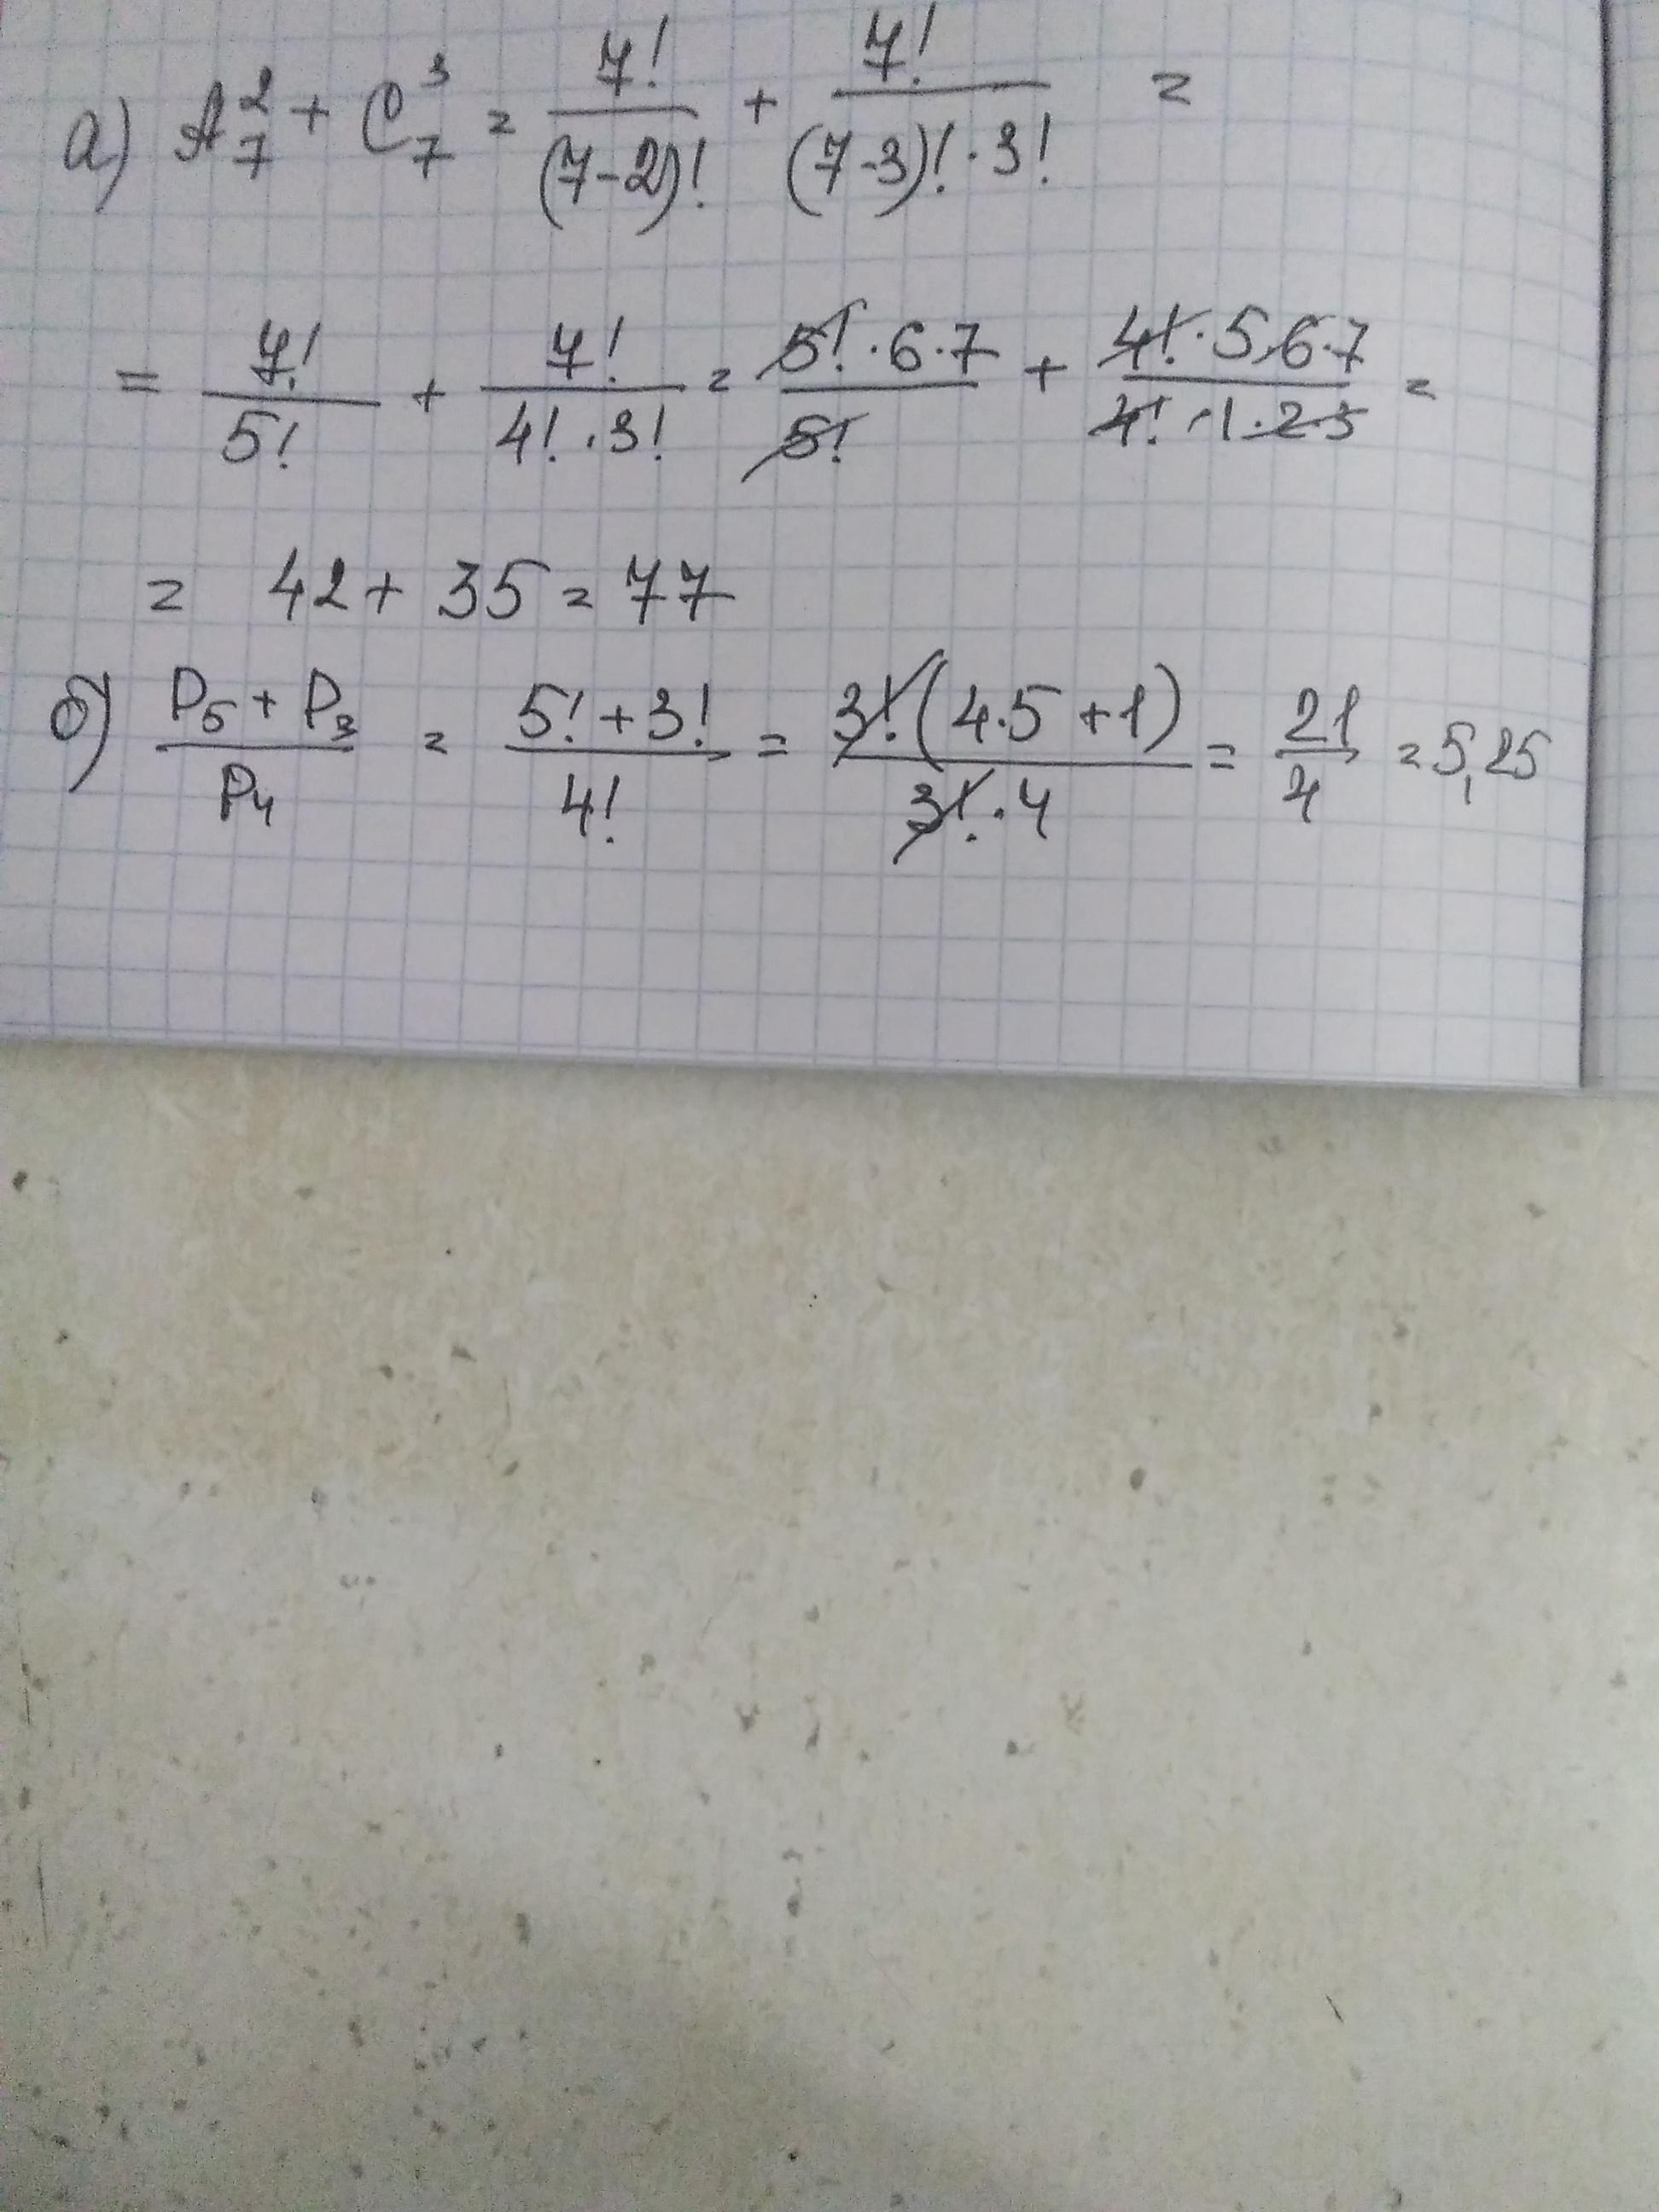 а) A₇² + C₇³ = 7!/(7-2)! + 7!/((7-3)!·3!) =
= 7!/5! + 7!/(4!·3!) = 5!·6·7/5! + 4!·5·6·7/(4!·1·2·3) =
= 42 + 35 = 77
б) (P₅ + P₃)/P₄ = (5! + 3!)/4! = 3!(4·5 + 1)/(3!·4) = 21/4 = 5,25